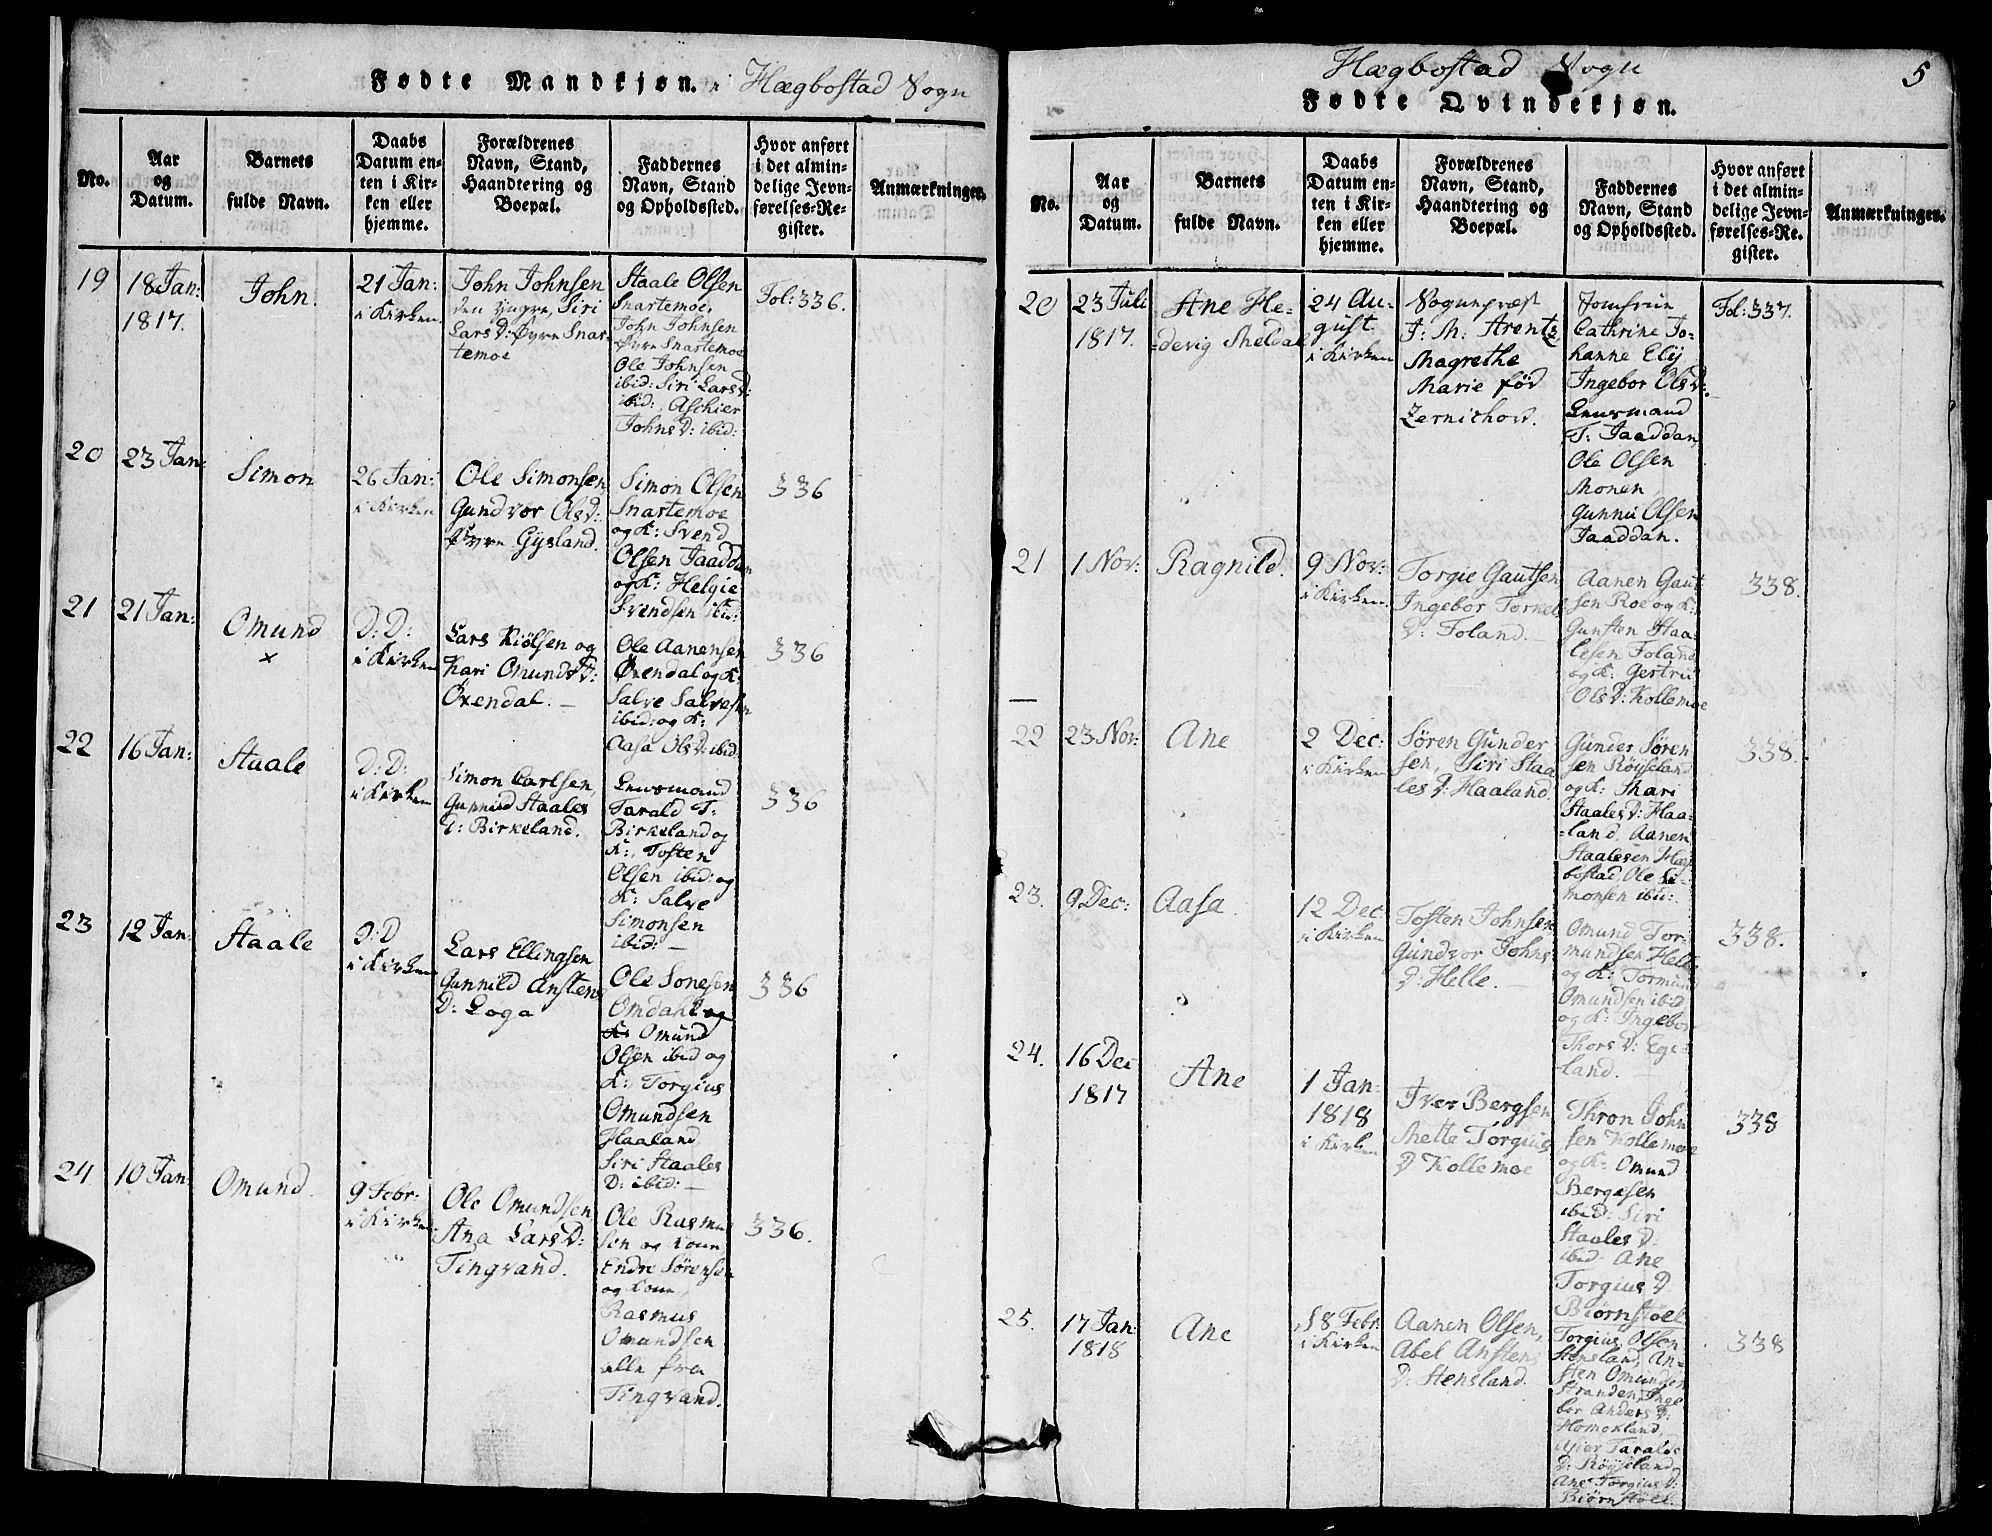 Fødte Mandkjøn. i Hægbostad Sogn
No.
Aar
og
Datum.
Barnets
fulde Navn.
Daabs
Datum en-
ten i Kir-
ken eller
hjemme.
Forældrenes
Navn, Stand,
Haandtering og
Boepæl.
Faddernes
Navn, Stand
og Opholdssted.
Hvor anført
i det almin-
delige Jevn-
førelses-Re-
gister.
Anmærkninger.
19
18 Jan:
1817.
John.
21 Jan:
i Kirken
John Johnsen
den yngre, Siri
Lars D: Øvre Snar-
temoe
Staale Olsen
Snartemoe,
John Johnsen
Øvre Snartemoe
Ole Johnsen
ibid: Siri Lars D:
ibid: Aschier
Johns D: ibid:
Fol: 336.
20
23 Jan:
Simon
26 Jan:
i Kirken
Ole Simonsen
Gundvor Ols D:
Øvre Gysland.
Simon Olsen
Snartemoe
og K: Svend
Olsen Jaaddan
og K: Helgie
Svendsen ibid:
336
21
21 Jan:
Omund
x
D: D:
i Kirken
Lars Kiølsen og
Kari Omunds D:
Øxendal. —
Ole Aanensen
Øxendal og K:
Salve Salvesen
ibid: og K:
Aasa Ols D: ibid:
336
22
16 Jan:
Staale
D: D:
i Kirken
Simon Carlsen,
Gunnild Staales
D: Birkeland.
Lensmand
Tarald T:
Birkeland og
K:, Tosten
Olsen ibid: og
K: Salve
Simonsen
ibid: —
336
23
12 Jan:
Staale
D: D
i Kirken
Lars Ellingsen
Gunnild Anstens
D: Loga
Ole Sonesen
Omdahl og
K: Omund
Olsen ibid og
K: Torgius
Omundsen
Haaland
Siri Staales
D: ibid: —
336
24
10 Jan:
Omund.
9 Febr:
i Kirken
Ole Omundsen
Ana Lars D:
Tingvand.
Ole Rasmu
sen og Kone
Endre Sørensen
og Kone,
Rasmus
Omundsen
alle fra
Tingvand.
336.
Hægbostad Sogn
5
Fødte Qvindekjøn.
No.
Aar
og
Datum.
Barnets
fulde Navn.
Daabs
Datum en-
ten i Kir-
ken eller
hjemme.
Forældrenes
Navn, Stand,
Haandtering og
Boepæl.
Faddernes
Navn, Stand
og Opholdssted.
Hvor anført
i det almin-
delige Jevn-
førelses-Re-
gister.
Anmærkninger.
20
23 Juli
1817.
Ane He-
-devig Meldal
24 Au-
gust
i Kirken
Sognepræst
J: M: Arentz
Magrethe
Marie fød
Zernichow.
Jomfrue
Cathrine Jo-
hanne Ely
Ingebor Ols D:
Lensmand
T: Jaaddan,
Ole Olsen
Monen
Gunnu Olsen
Jaaddan.
Fol: 337.
21
1 Nov:
Ragnild.
9 Nov:
i Kirken.
Torgie Gautsen
Ingebor Torkels
D: Foland. —
Aanen Gaut
sen Roe og K:
Gunsten Staa-
lesen Foland
og K: Gertru
Ols D: Kollemoe
338.
22
23 Nov:
Ane
2 Dec:
i Kirken
Søren Gunder
sen, Siri Staa
les D: Haaland.
Gunder Søren
sen Røyseland
og K: Mari
Staales D: Haa-
-land, Aanen
Staalesen Hæg
bostad Ole Si-
monsen ibid:
338.
23.
9 Dec:
Aasa.
12 Dec:
i Kirken
Tosten Johnsen
Gundvor Johns
D: Helle. —
Omund Tor-
mundsen Helle
og K: Tormund
Omundsen ibid
og K: Ingebor
Thors D: Ege-
land.
338.
24.
16 Dec
1817
Ane
1 Jan:
1818
i Kirken
Iver Bergsen
Mette Torgius
D Kollemoe
Thron John
sen Kollemoe
og K: Omund
Bergesen
ibid: Siri
Staales D:
ibid: Ane
Torgius D
Biørnstøel
338
25.
17 Jan:
1818
Ane
18 Febr.
i Kirken
Aanen Olsen,
Abel Anstens
D: Stensland.
Torgius Olsen
Stensland, An-
sten Omundsen
Stranden, Inge
bor Anders D:
Homekland,
Tarals
D: Røyseland
Ane Torgius D:
Biørnstøel.
338